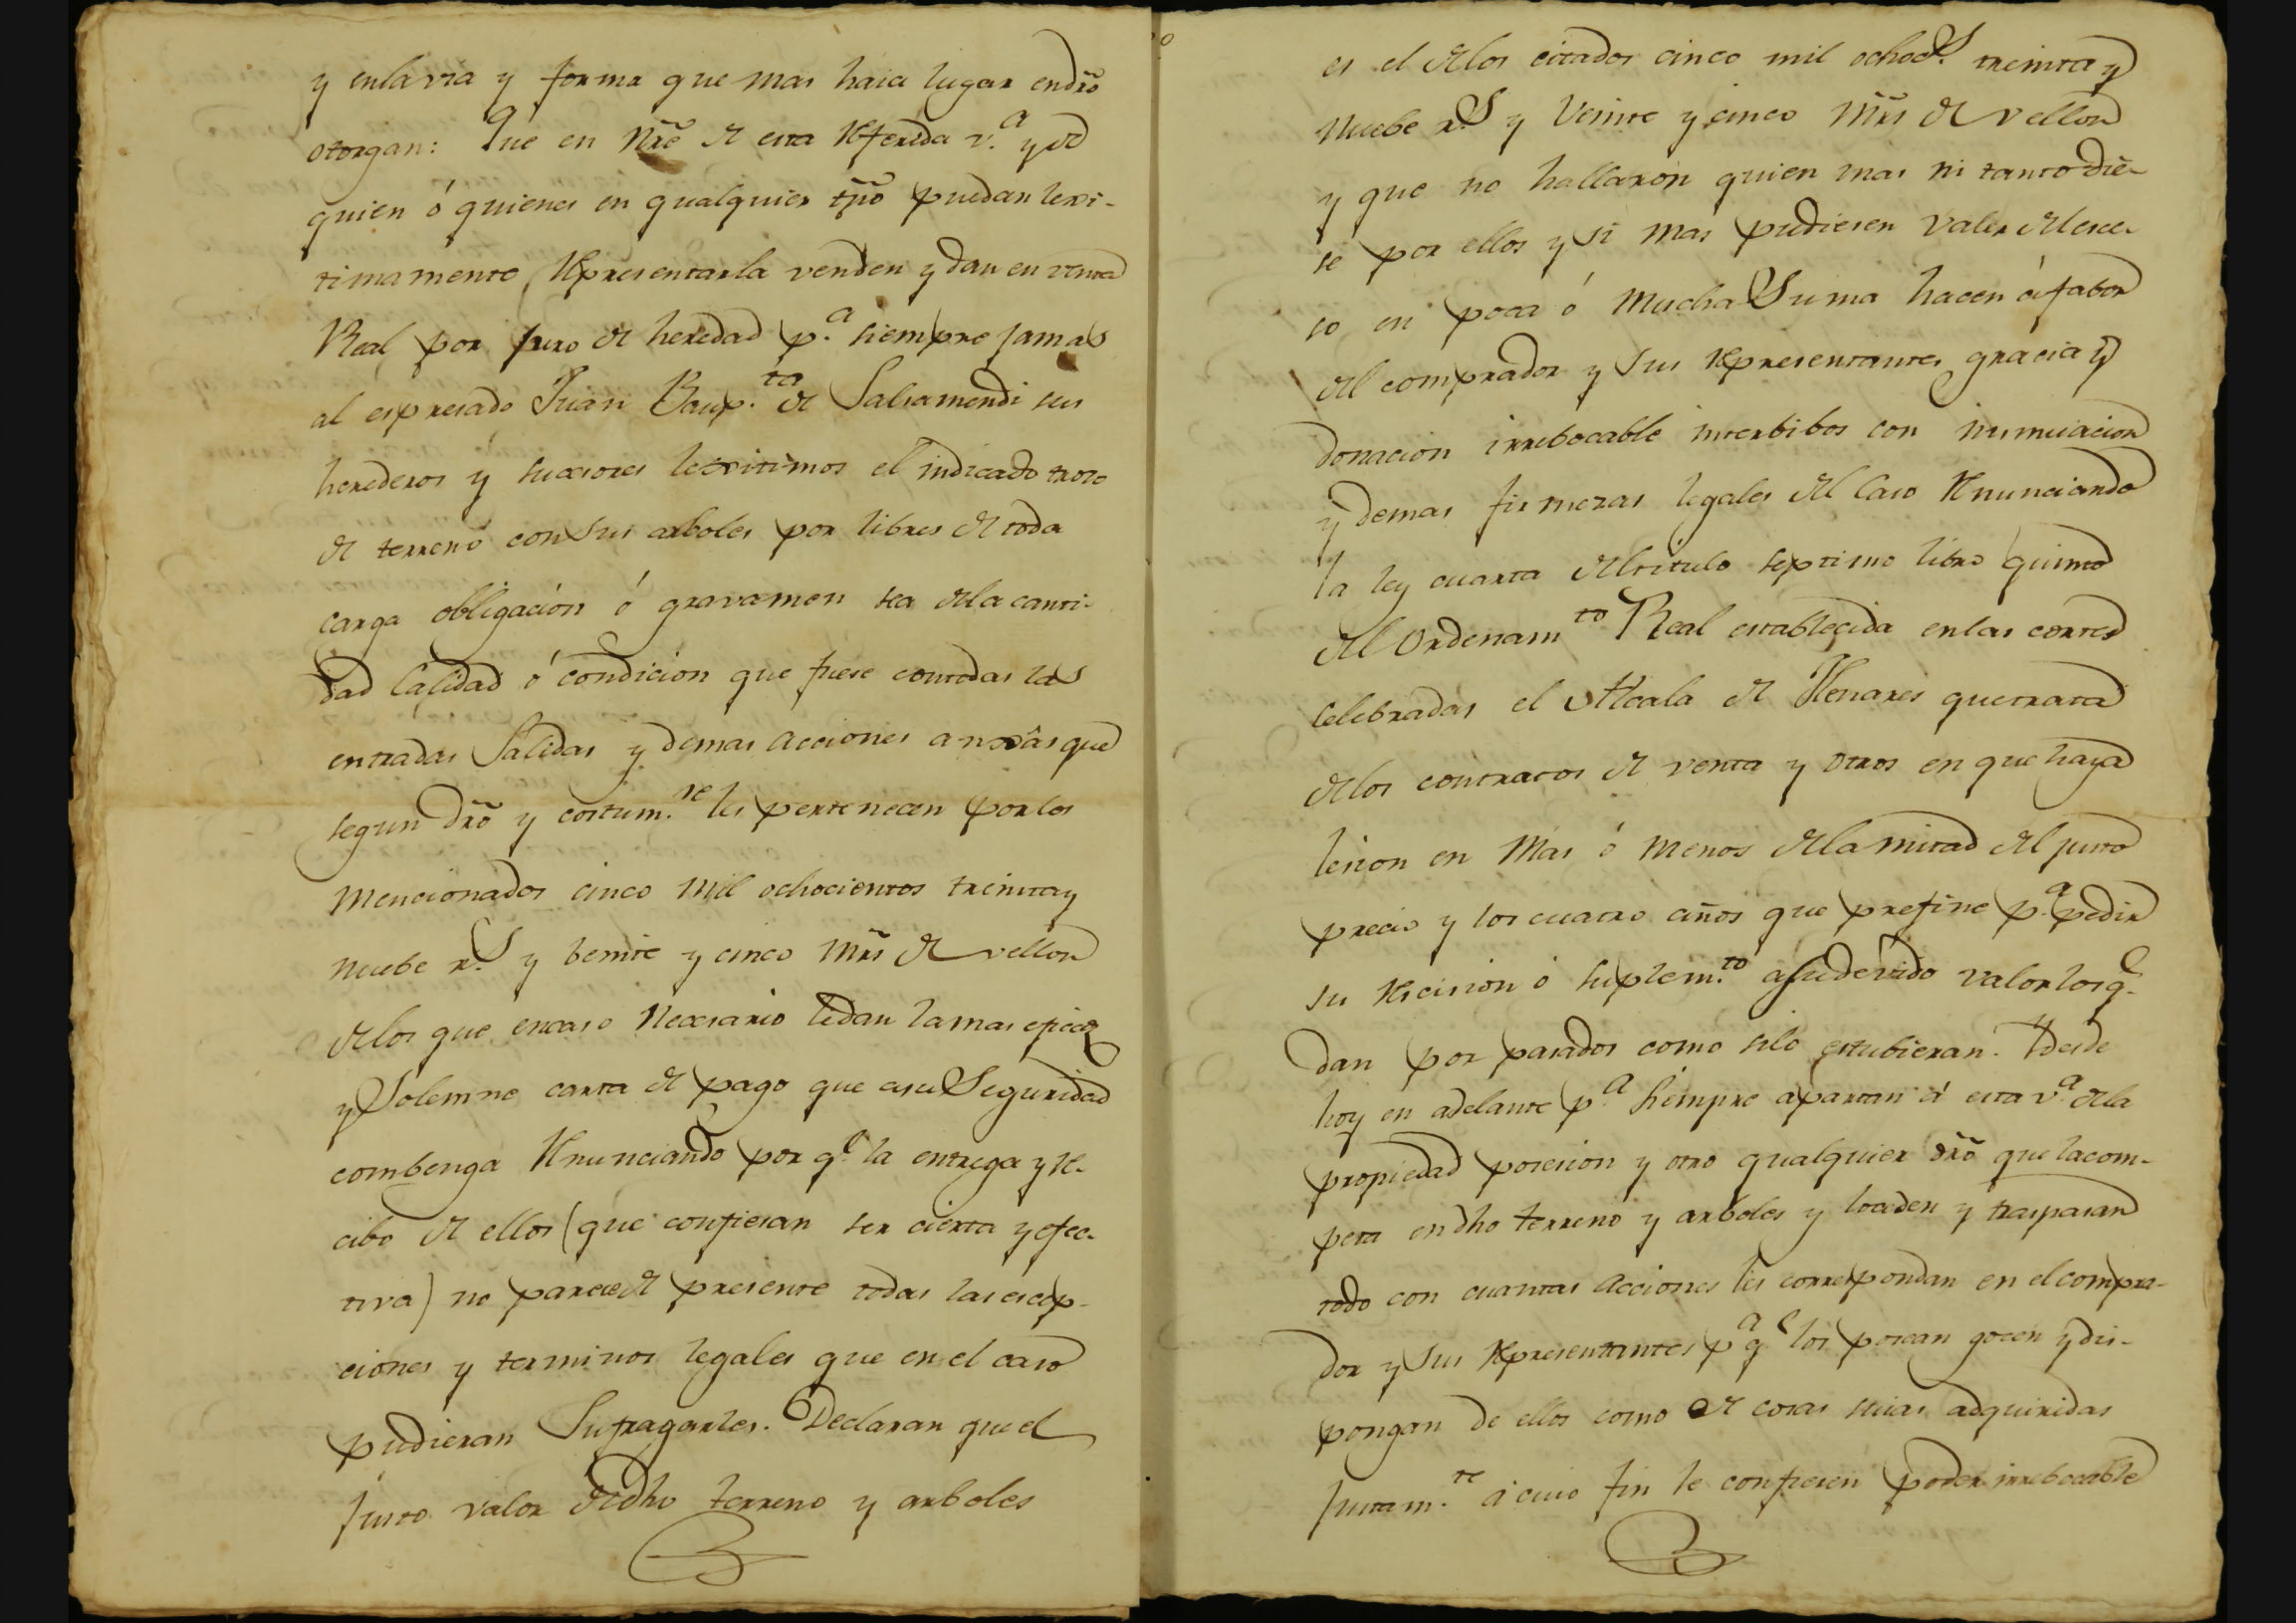 y enlavia y forma que mas haia lugar endrõ
otorgan: Que en Nrẽ de esta referida v.ª y de
quien ó quienes en qualquier tpõ puedan lexi-
timamente representarla venden y dan en venta
Real por juro de heredad p.ª siempre jamas
al espresado Juan Baup.ta de Salsamendi sus
herederos y sucesores lexitimos el indicado trozo
de terreno con sus arboles por libres de toda
carga obligación ó gravamen sea dela canti-
dad Calidad ó condicion que fuese contodas las
entradas Salidas y demas acciones anexas que
segun drõ y costum.re les pertenecen por los
Mencionados cinco mil ochocientos treinta y
Nuebe r.s y beinte y cinco Mrs̃ de vellon
delos que encaso Necesario ledan la mas eficaz
y Solemne carta de pago que asu Seguridad
combenga renunciando por q.e la entrega y re-
cibo de ellos (que confiesan ser cierta y efec-
tiva) no parece de presente todas las escep-
ciones y terminos legales que en el caso
pudieran Sufragarles. Declaran que el
Justo valor de dho terreno y arboles
es el delos citados cinco mil ochoc.s treinta y
Nuebe r.s y Veinte y cinco Mrs̃ de vellon
y que no hallaron quien mas ni tanto die-
se por ellos y si mas pudiesen valer del esce-
so en poca ó Mucha Suma hacen á fabor
del comprador y sus representantes gracia y
donacion irrebocable interbibos con insinuacion
y demas firmezas legales del Caso renunciando
la ley cuarta deltitulo septimo libro quinto
del Ordenam.to Real establecida enlas cortes
Celebradas el Alcala de Henares que trata
delos contratos de venta y otros en que haya
lesion en Mas ó menos dela mitad del justo
precio y los cuatro años que prefine p.ª pedir
su rescision ó suplem.to asu devido valor los q.e
dan por pasados como silo estubieran. Desde
hoy en adelante p.ª siempre apartan á esta v.ª dela
propiedad posesion y otro qualquier drõ que la com-
peta en dho terreno y arboles y lo ceden y traspasan
todo con cuantas acciones les correspondan en el compra-
dor y sus representantes p.ª q.e los posean gocen y dis-
pongan de ellos como de cosas suias adquiridas
Justam.te á cuio fin le confieren poder irrebocable